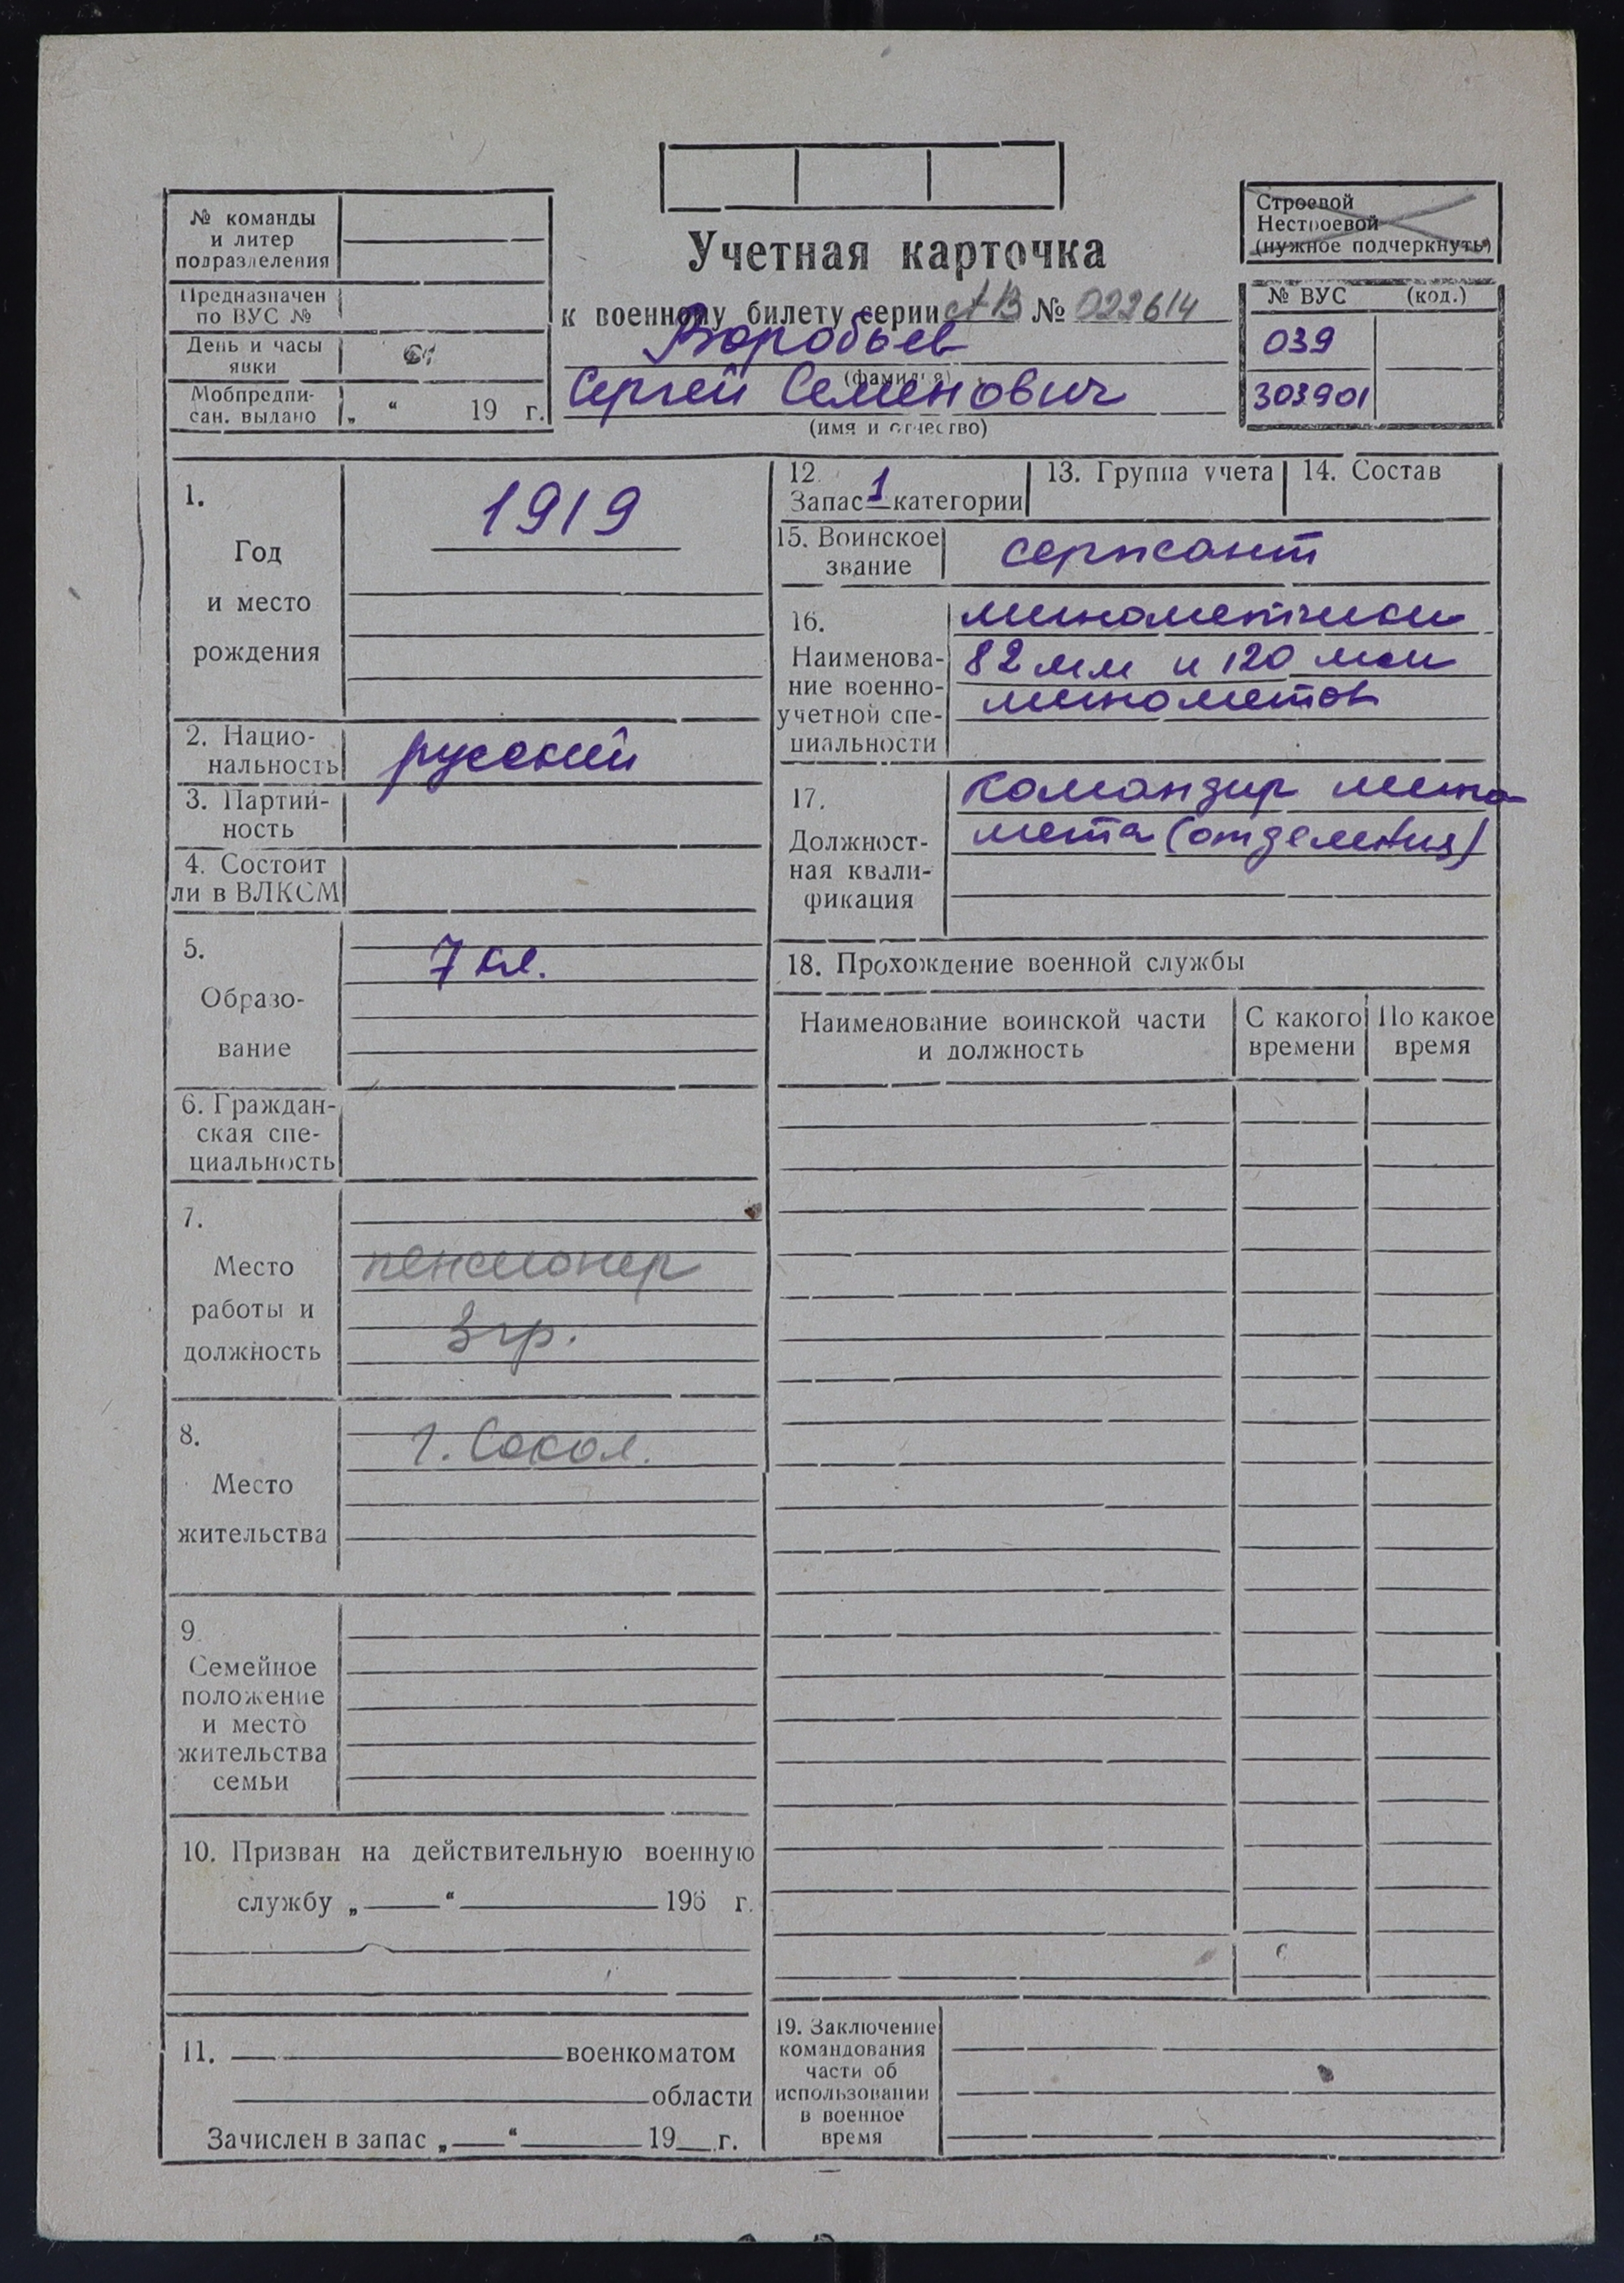 № команды
и литер
подразделения
Предназначен
по ВУС №
День и часы
явки
Мобпредпи-
сан. выдано „ “ 19 г.
Учетная карточка
к военному билету серии АВ № 022614
Воробьев
(фамилия)
Сергей Семенович
(имя и отчество)
Строевой
Нестроевой
(нужное подчеркнуть)
№ ВУС (код.)
039
303901
1.
Год
и место
рождения
1919
2. Нацио-
нальность
русский
3. Партий-
ность
4. Состоит
ли в ВЛКСМ
5.
Образо-
вание
7 кл.
6. Граждан-
ская спе-
циальность
7.
Место
работы и
должность
пенсионер
3 гр.
8.
Место
жительства
г. Сокол.
9.
Семейное
положение
и место
жительства
семьи
10. Призван на действительную военную
службу „ “ 196 г.
11. военкоматом
области
Зачислен в запас „ “ 19 г.
12.
Запас 1 категории
13. Группа учета
14. Состав
15. Воинское
звание
сержант
16.
Наименова-
ние военно-
учетной спе-
циальности
минометчики
82 мм и 120 мм
минометов
17.
Должност-
ная квали-
фикация
командир мино
мета (отделения)
18. Прохождение военной службы
Наименование воинской части
и должность
С какого
времени
По какое
время
19. Заключение
командования
части об
использовании
в военное
время